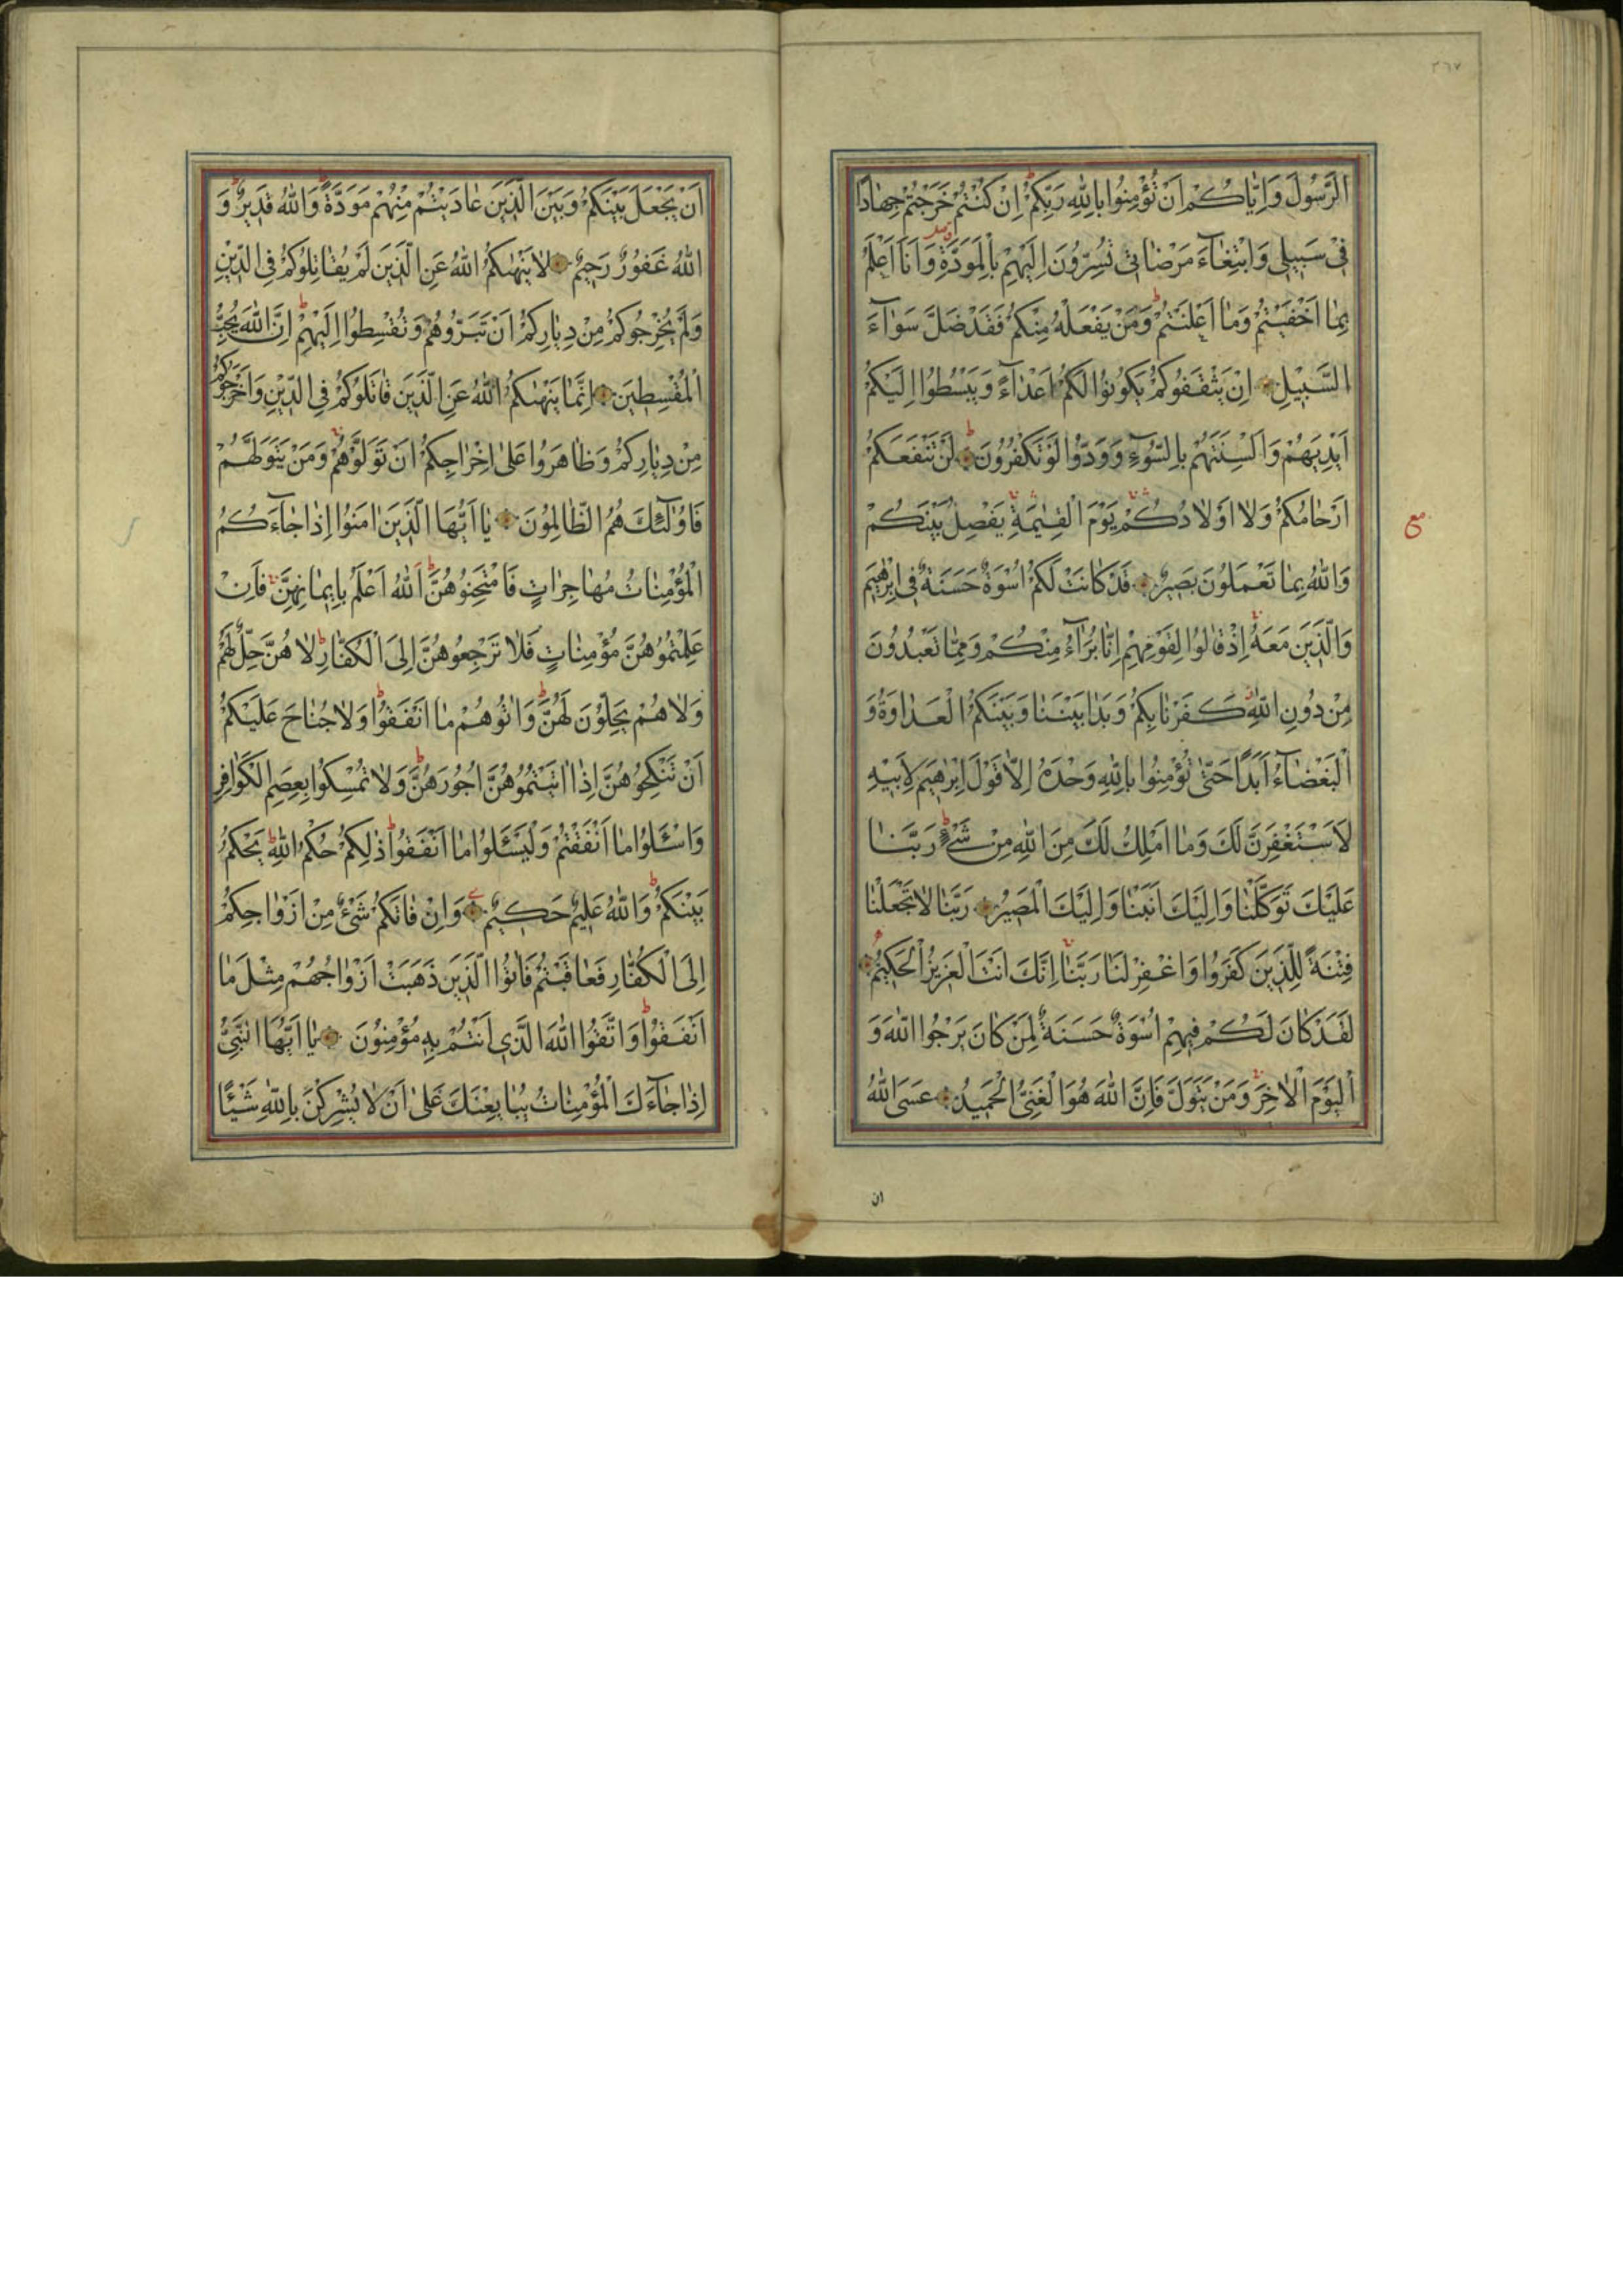 ٣٦٧
الرَّسُولَ وَاِيَّاكُمْ اَنْ تُؤْمِنُوا بِاللّٰهِ رَبِّكُمْ اِنْ كُنْتُمْ خَرَجْتُمْ جِهَادًا
فِى سَبِيلِى وَابْتِغَآءَ مَرْضَاتِى تُسِرُّونَ اِلَيْهِمْ بِالْمَوَدَّةِ وَاَنَا اَعْلَمُ
بِمَا اَخْفَيْتُمْ وَمَا اَعْلَنْتُمْ وَمَنْ يَفْعَلْهُ مِنْكُمْ فَقَدْ ضَلَّ سَوَآءَ
السَّبِيلِ اِنْ يَثْقَفُوكُمْ يَكُونُوا لَكُمْ اَعْدَآءً وَيَبْسُطُوا اِلَيْكُمْ
اَيْدِيَهُمْ وَاَلْسِنَتَهُمْ بِالسُّوءِ وَوَدُّوا لَوْ تَكْفُرُونَ لَنْ تَنْفَعَكُمْ
اَرْحَامُكُمْ وَلَا اَوْلَادُكُمْ يَوْمَ الْقِيٰمَةِ يَفْصِلُ بَيْنَكُمْ
مع
وَاللّٰهُ بِمَا تَعْمَلُونَ بَصِيرٌ قَدْ كَانَتْ لَكُمْ اُسْوَةٌ حَسَنَةٌ فِى اِبْرٰهِيمَ
وَالَّذِينَ مَعَهُ اِذْ قَالُوا لِقَوْمِهِمْ اِنَّا بُرَآءُ مِنْكُمْ وَمِمَّا تَعْبُدُونَ
مِنْ دُونِ اللّٰهِ كَفَرْنَا بِكُمْ وَبَدَا بَيْنَنَا وَبَيْنَكُمُ الْعَدَاوَةُ وَ
الْبَغْضَآءُ اَبَدًا حَتّٰى تُؤْمِنُوا بِاللّٰهِ وَحْدَهُ اِلَّا قَوْلَ اِبْرٰهِيمَ لِاَبِيهِ
لَاَسْتَغْفِرَنَّ لَكَ وَمَا اَمْلِكُ لَكَ مِنَ اللّٰهِ مِنْ شَىْءٍ رَبَّنَا
عَلَيْكَ تَوَكَّلْنَا وَاِلَيْكَ اَنَبْنَا وَاِلَيْكَ الْمَصِيرُ رَبَّنَا لَا تَجْعَلْنَا
فِتْنَةً لِلَّذِينَ كَفَرُوا وَاغْفِرْ لَنَا رَبَّنَا اِنَّكَ اَنْتَ الْعَزِيزُ الْحَكِيمُ
لَقَدْ كَانَ لَكُمْ فِيهِمْ اُسْوَةٌ حَسَنَةٌ لِمَنْ كَانَ يَرْجُوا اللّٰهَ وَ
الْيَوْمَ الْاٰخِرَ وَمَنْ يَتَوَلَّ فَاِنَّ اللّٰهَ هُوَ الْغَنِىُّ الْحَمِيدُ عَسَى اللّٰهُ
ان
اَنْ يَجْعَلَ بَيْنَكُمْ وَبَيْنَ الَّذِينَ عَادَيْتُمْ مِنْهُمْ مَوَدَّةً وَاللّٰهُ قَدِيرٌ وَ
اللّٰهُ غَفُورٌ رَحِيمٌ لَا يَنْهٰيكُمُ اللّٰهُ عَنِ الَّذِينَ لَمْ يُقَاتِلُوكُمْ فِى الدِّينِ
وَلَمْ يُخْرِجُوكُمْ مِنْ دِيَارِكُمْ اَنْ تَبَرُّوهُمْ وَتُقْسِطُوا اِلَيْهِمْ اِنَّ اللّٰهَ يُحِبُّ
الْمُقْسِطِينَ اِنَّمَا يَنْهٰيكُمُ اللّٰهُ عَنِ الَّذِينَ قَاتَلُوكُمْ فِى الدِّينِ وَاَخْرَجُوكُمْ
مِنْ دِيَارِكُمْ وَظَاهَرُوا عَلٰى اِخْرَاجِكُمْ اَنْ تَوَلَّوْهُمْ وَمَنْ يَتَوَلَّهُمْ
فَاُولٰٓئِكَ هُمُ الظَّالِمُونَ يَا اَيُّهَا الَّذِينَ اٰمَنُوا اِذَا جَآءَكُمُ
الْمُؤْمِنَاتُ مُهَاجِرَاتٍ فَامْتَحِنُوهُنَّ اَللّٰهُ اَعْلَمُ بِاِيمَانِهِنَّ فَاِنْ
عَلِمْتُمُوهُنَّ مُؤْمِنَاتٍ فَلَا تَرْجِعُوهُنَّ اِلَى الْكُفَّارِ لَا هُنَّ حِلٌّ لَهُمْ
وَلَا هُمْ يَحِلُّونَ لَهُنَّ وَاٰتُوهُمْ مَا اَنْفَقُوا وَلَا جُنَاحَ عَلَيْكُمْ
اَنْ تَنْكِحُوهُنَّ اِذَا اٰتَيْتُمُوهُنَّ اُجُورَهُنَّ وَلَا تُمْسِكُوا بِعِصَمِ الْكَوَافِرِ
وَاسْـَٔلُوا مَا اَنْفَقْتُمْ وَلْيَسْـَٔلُوا مَا اَنْفَقُوا ذٰلِكُمْ حُكْمُ اللّٰهِ يَحْكُمُ
بَيْنَكُمْ وَاللّٰهُ عَلِيمٌ حَكِيمٌ وَاِنْ فَاتَكُمْ شَىْءٌ مِنْ اَزْوَاجِكُمْ
اِلَى الْكُفَّارِ فَعَاقَبْتُمْ فَاٰتُوا الَّذِينَ ذَهَبَتْ اَزْوَاجُهُمْ مِثْلَ مَا
اَنْفَقُوا وَاتَّقُوا اللّٰهَ الَّذِى اَنْتُمْ بِهِ مُؤْمِنُونَ يَا اَيُّهَا النَّبِىُّ
اِذَا جَآءَكَ الْمُؤْمِنَاتُ يُبَايِعْنَكَ عَلٰى اَنْ لَا يُشْرِكْنَ بِاللّٰهِ شَيْئًا